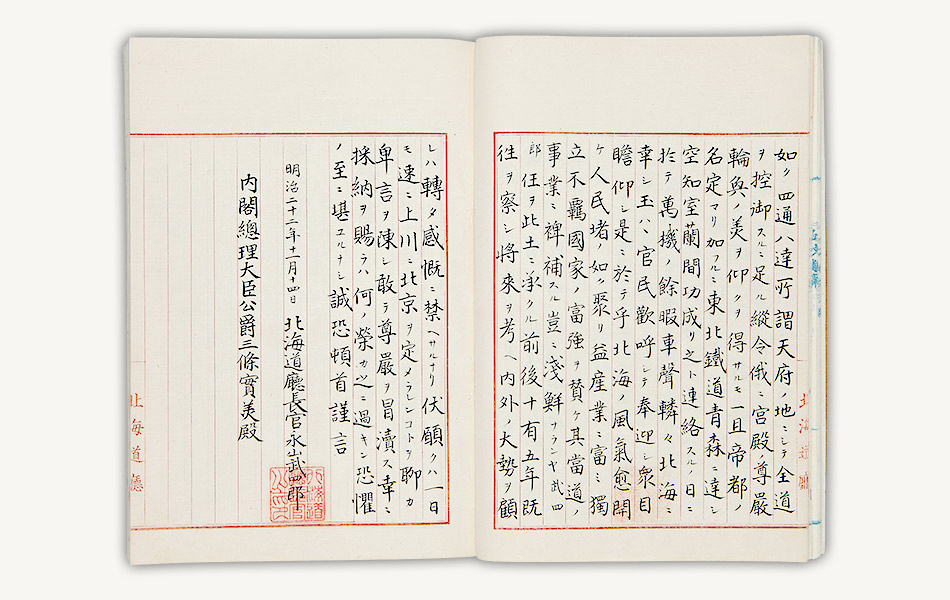 如ク四通八達所謂天府ノ地ニシテ全道
ヲ控御スルニ足ル縱令俄ニ宮殿ノ尊嚴
輪奐ノ美ヲ仰クヲ得サルモ一旦帝都ノ
名定マリ加フルニ東北鐵道青森ニ達シ
空知室蘭間功成リ之ト連絡スルノ日ニ
於テ萬機ノ餘暇車聲轔々北海ニ
幸シ玉ハヽ官民歡呼シテ奉迎シ衆目
瞻仰シ是ニ於テ乎北海ノ風氣愈開
ケ人民堵ノ如ク聚リ益産業ニ富ミ獨
立不羈國家ノ富強ヲ賛ケ其當道ノ
事業ニ裨補スル豈ニ淺鮮ナランヤ武四
郎任ヲ此土ニ承クル前後十有五年既
往ヲ察シ將來ヲ考ヘ内外ノ大勢ヲ顧
レハ轉タ感慨ニ禁ヘサルナリ伏願クハ一日
モ速ニ上川ニ北京ヲ定メラレンコトヲ聊カ
卑言ヲ陳シ敢テ尊嚴ヲ冒瀆ス幸ニ
採納ヲ賜ラハ何ノ榮カ之ニ過キン恐懼
ノ至ニ堪エルナシ誠恐頓首謹言
明治二十二年十一月十四日 北海道廳長官永山武四郎
内閣總理大臣公爵三條實美殿
北海道廳
北海道廳